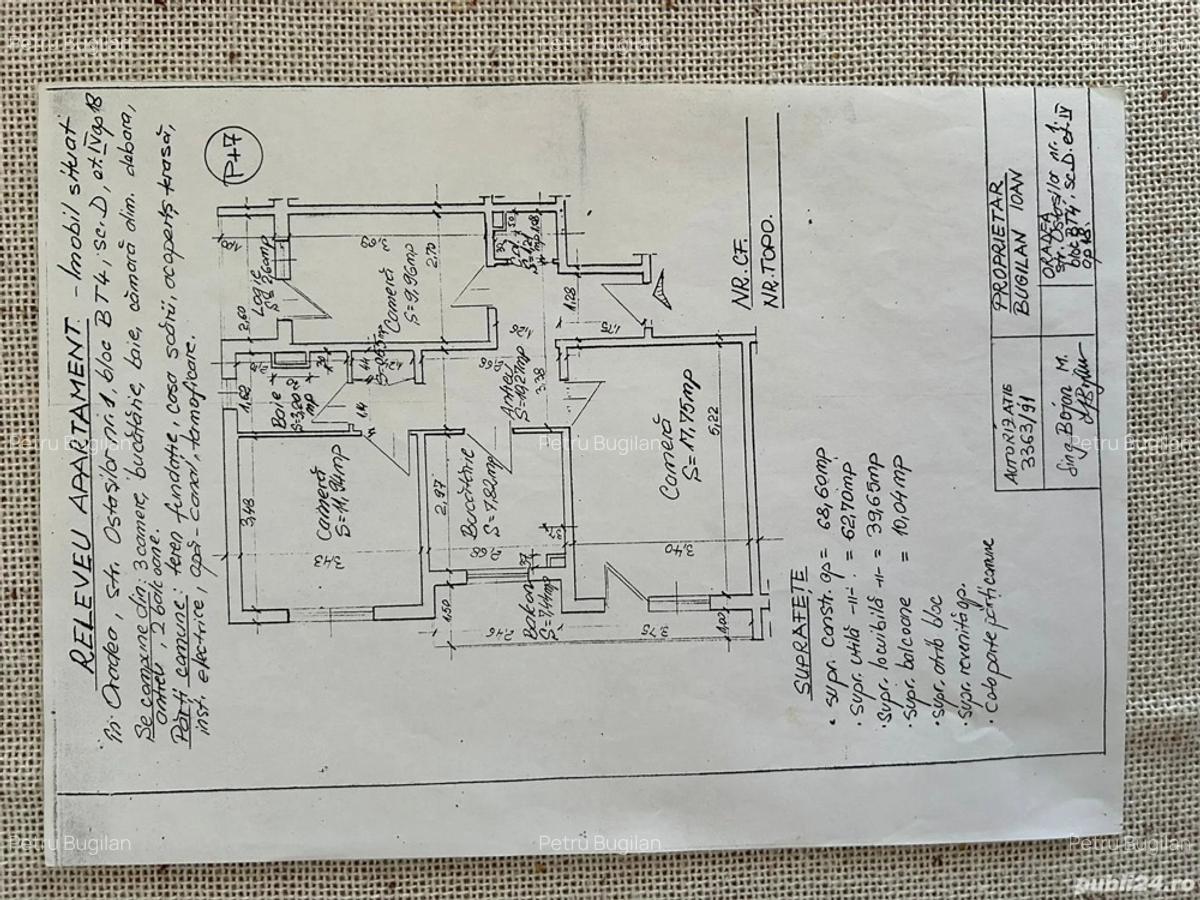 RELEVEU APARTAMENT - Imobil situat
în Oradea, str. Ostașilor nr. 1, bloc BT4, sc. D, et. IV ap 18
Se compune din: 3 camere, bucătărie, baie, cămară alim. debara,
antreu, 2 balcoane.
Părți comune: teren fundație, casa scării, acoperiș terasă,
inst. electrice, apă-canal, termoficare.
P+7
Logie
S=2,60mp
1,00
2,60
Cameră
S=9,96mp
3,69
2,70
1,28
1,75
Baie
S=3,20
mp
1,62
1,14
Antreu
S=10,27mp
3,38
2,66
Cameră
S=11,94mp
3,48
3,43
Bucătărie
S=7,82mp
2,97
2,68
Balcon
S=7,44mp
1,50
2,46
3,75
1,00
Cameră
S=17,75mp
5,22
3,40
NR. CF.
NR. TOPO.
SUPRAFEȚE
• supr. constr. ap = 68,60mp
• supr. utilă -"- = 62,70mp
• supr. locuibilă -"- = 39,65mp
• supr. balcoane = 10,04mp
• supr. atrib bloc
• supr. revenită ap.
• Cota parte părți comune
AUTORIZATIE
3363/91
PROPRIETAR
BUGILAN IOAN
Sing. Bojan M.
ORADEA
str. Ostașilor nr. 1.
bloc BT4, sc. D. et. IV
ap 18.
Petru Bugilan
Petru Bugilan
Petru Bugilan
Petru Bugilan
Petru Bugilan
Petru Bugilan
Petru Bugilan
Petru Bugilan
Petru Bugilan
publi24.ro